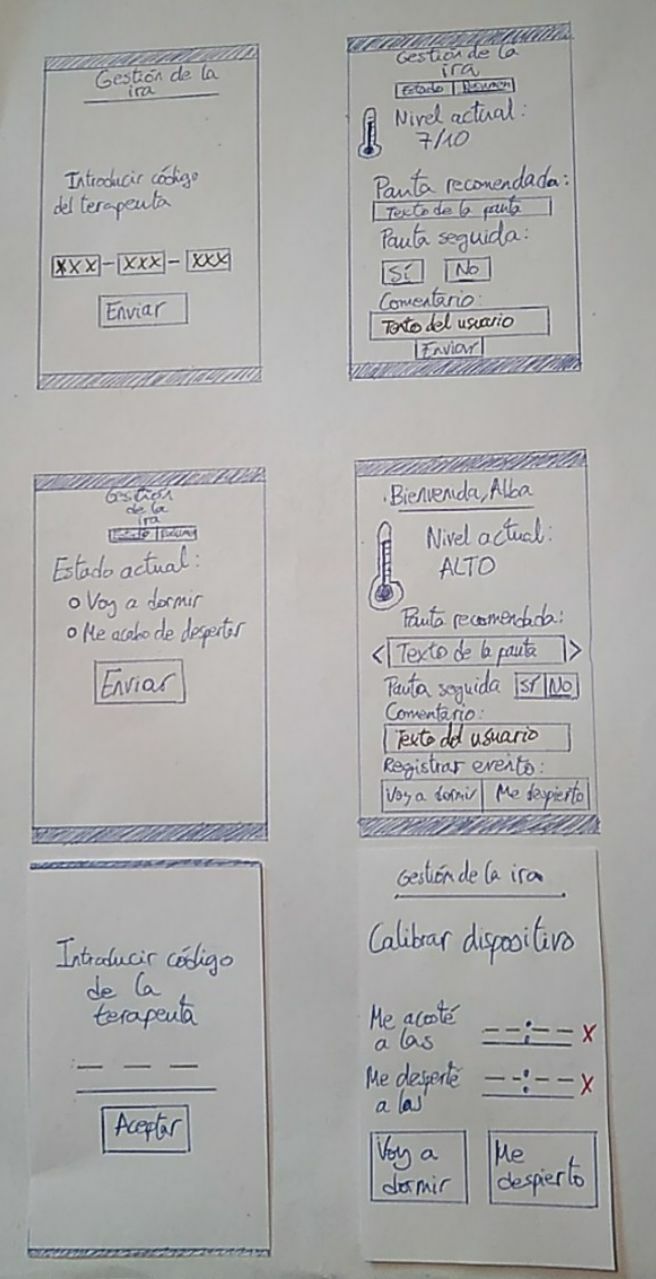 Gestión de la
ira
Introducir código
del terapeuta
XXX - XXX - XXX
Enviar
Gestión de la
ira
Estado Resumen
Nivel actual:
7/10
Pauta recomendada:
Texto de la pauta
Pauta seguida:
Sí No
Comentario:
Texto del usuario
Enviar
Gestión
de la
ira
Estado Resumen
Estado actual:
Voy a dormir
Me acabo de despertar
Enviar
Bienvenida, Alba
Nivel actual:
ALTO
Pauta recomendada:
< Texto de la pauta >
Pauta seguida Sí No
Comentario:
Texto del usuario
Registrar evento:
Voy a dormir Me despierto
Introducir código
de la
terapeuta
_ _ _
Aceptar
Gestión de la ira
Calibrar dispositivo
Me acosté
a las _ _ : _ _ X
Me desperté
a las _ _ : _ _ X
Voy a
dormir
Me
despierto